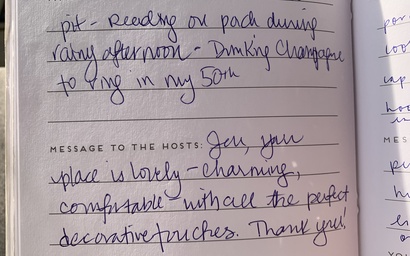 pit - Reading on porch during
rainy afternoon - Drinking Champagne
to ring in my 50th
MESSAGE TO THE HOSTS: Jen, your
place is lovely - charming,
comfortable with all the perfect
decorative touches. Thank you!
MES